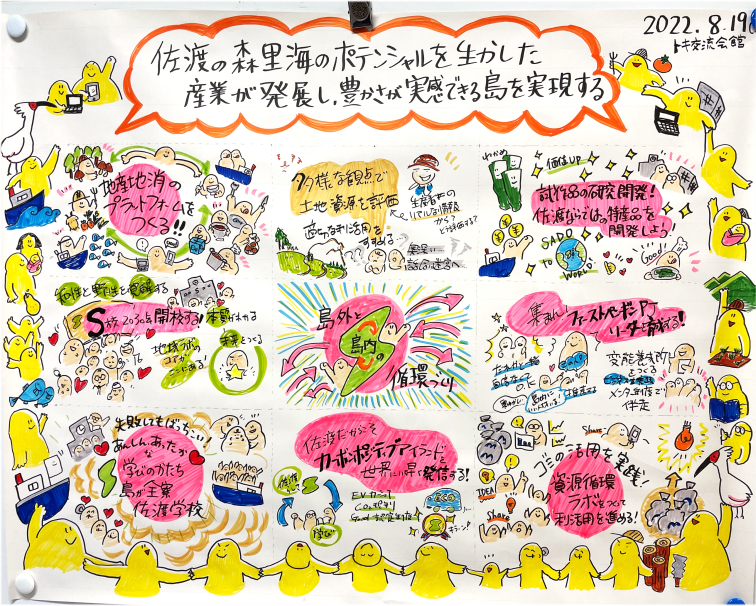 2022.8.19
トキ交流会館
佐渡の森里海のポテンシャルを生かした
産業が発展し、豊かさが実感できる島を実現する
地産地消の
プラットフォームを
つくる!!
多様な観点で
土地資源を評価
適切な利活用を
すすめる
生産者の
リアルな情報
から?
わかめ
価値UP
試作品の研究開発!
佐渡ならではの特産品を
開発しよう
SADO
to
WORLD
Good!
和性と野性を覚醒する
S校2030年開校する!
本気でやる
未来をつくる
地域
島外と
島内の
循環づくり
集まれ
ファーストペンギン
リーダー育成する!
をつくる
メンター制度で
伴走
失敗してもばっちこい!
あんしん、あったか
な
学びのかたち
島が全寮
佐渡学校
佐渡だからこそ
カーボンポジティブアイランドを
世界に早く発信する!
EV
学び
Share
IDEA
Share
ゴミの活用を実践!
資源循環
ラボをつくって
利活用を進める!